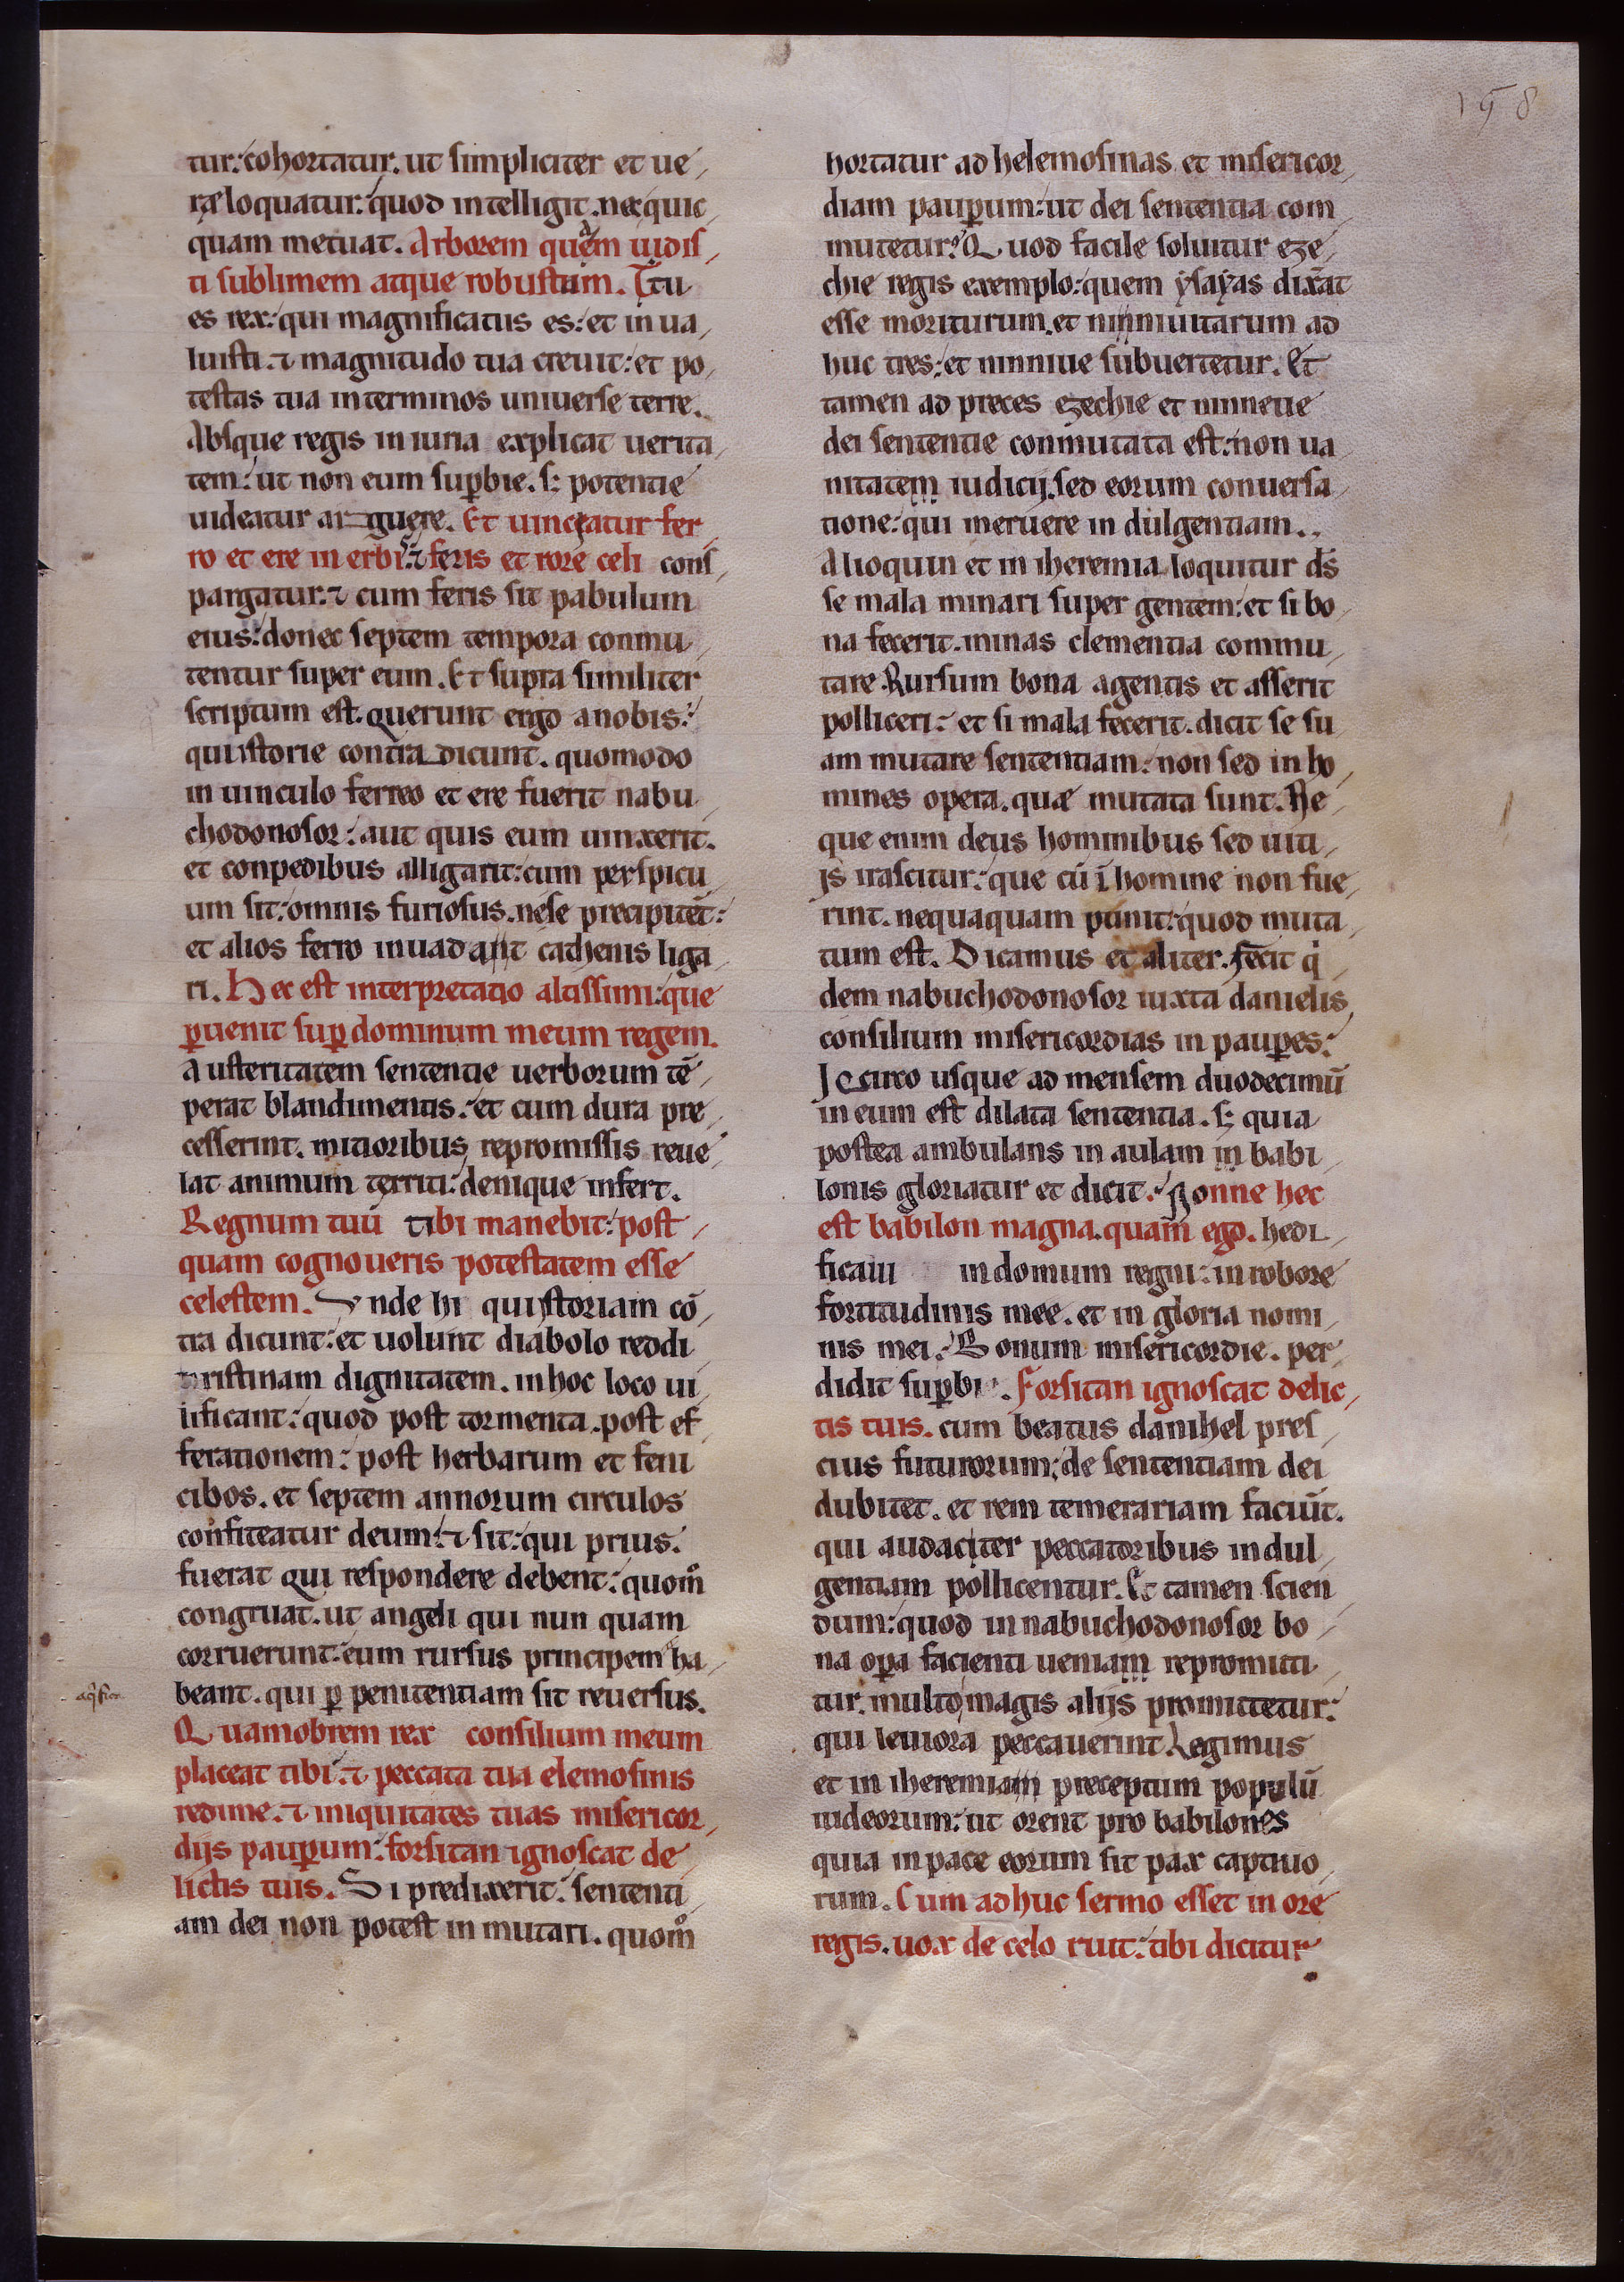 158
tur: cohortatur. ut simpliciter et ue
ræ loquatur: quod intelligit. nec quic
quam metuat. Arborem quem uidis
ti sublimem atque robustam. Tu
es rex: qui magnificatus es: et in ua
luisti. ⁊ magnitudo tua creuit: et po
testas tua in terminos uniuerse terre.
Absque regis iniuria explicat uerita
tem: ut non eum supbie. s; potentie
uideatur arguere. Et uinceatur fer
ro et ere in erbis. ⁊ feris et rore celi cons
pargatur. ⁊ cum feris sit pabulum
eius: donec septem tempora conmu
tentur super eum. Et supra similiter
scriptum est. querunt ergo a nobis:
qui istorie contra dicunt. quomodo
in uinculo ferreo et ere fuerit nabu
chodonosor: aut quis eum uinxerit.
et conpedibus alligarit: cum perspicu
um sit: omnis furiosus. ne se precipitet̄:
et alios ferro inuadant cathenis liga
ri. Hec est interpretatio altissimi: que
puenit sup dominum meum regem.
Austeritatem sententie uerborum tē
perat blandimentis. et cum dura pre
cesserint. mitioribus repromissis reue
lat animum territi: denique infert.
Regnum tuū tibi manebit: post
quam cognoueris potestatem esse
celestem. Unde hi qui istoriam cō
tra dicunt: et uolunt diabolo reddi
pristinam dignitatem. in hoc loco ui
uificant: quod post tormenta. post ef
ferationem: post herbarum et feni
cibos. et septem annorum circulos
confiteatur deum: ⁊ sit: qui prius.
fuerat Qui respondere debent: quomͦ
congruat. ut angeli qui nun quam
corruerunt: eum rursus principem ha
beant. qui p penitentiam sit reuersus.
Quamobrem rex consilium meum
placeat tibi. ⁊ peccata tua elemosinis
redime. ⁊ iniquitates tuas misericor
dijs paupum: forsitan ignoscat de
lictis tuis. Si predixerit: sententi
am dei non potest in mutari. quomͦ
hortatur ad helemosinas et misericor
diam paupum: ut dei sententia com
mutetur? Quod facile soluitur eze
chie regis exemplo: quem ysayas dixāt
esse moriturum. et niniuitarum ad
huc tres: et niniue subuertetur. Et
tamen ad preces ezechie et nineue
dei sententie conmutata est: non ua
nitatem iudicij. sed eorum conuersa
tione: qui meruere in dulgentiam.
Alioquin et in iheremia loquitur d̄s
se mala minari super gentem: et si bo
na fecerit. minas clementia commu
tare. Rursum bona agentis et asserit
polliceri: et si mala fecerit. dicit se su
am mutare sententiam: non sed in ho
mines opera. quæ mutata sunt. Ne
que enim deus hominibus sed uiti
js irascitur: que cū ī homine non fue
rint. nequaquam punit: quod muta
tum est. Dicamus et aliter. fecit q
dem nabuchodonosor iuxta danielis
consilium misericordias in paupes:
Iccirco usque ad mensem duodecimū
in eum est dilata sententia. S; quia
postea ambulans in aulam in babi
lonis gloriatur et dicit. Nonne hec
est babilon magna. quam ego. hedi
ficaui in domum regni: in robore
fortitudinis mee. et in gloria nomi
nis mei. Bonum misericordie. per
didit supbie. Forsitan ignoscat delic
tis tuis. cum beatus danihel pres
cius futurorum: de sententiam dei
dubitet. et rem temerariam faciūt.
qui audaciter peccatoribus indul
gentiam pollicentur. Et tamen scien
dum: quod in nabuchodonosor bo
na opa facienti ueniam repromitti
tur. multo magis alijs promittetur:
qui leuiora peccauerint Legimus
et in iheremiam preceptum populū
iudeorum: ut orent pro babilones
quia in pace eorum sit pax captiuo
rum. Cum adhuc sermo esset in ore
regis. uox de celo ruit: tibi dicitur